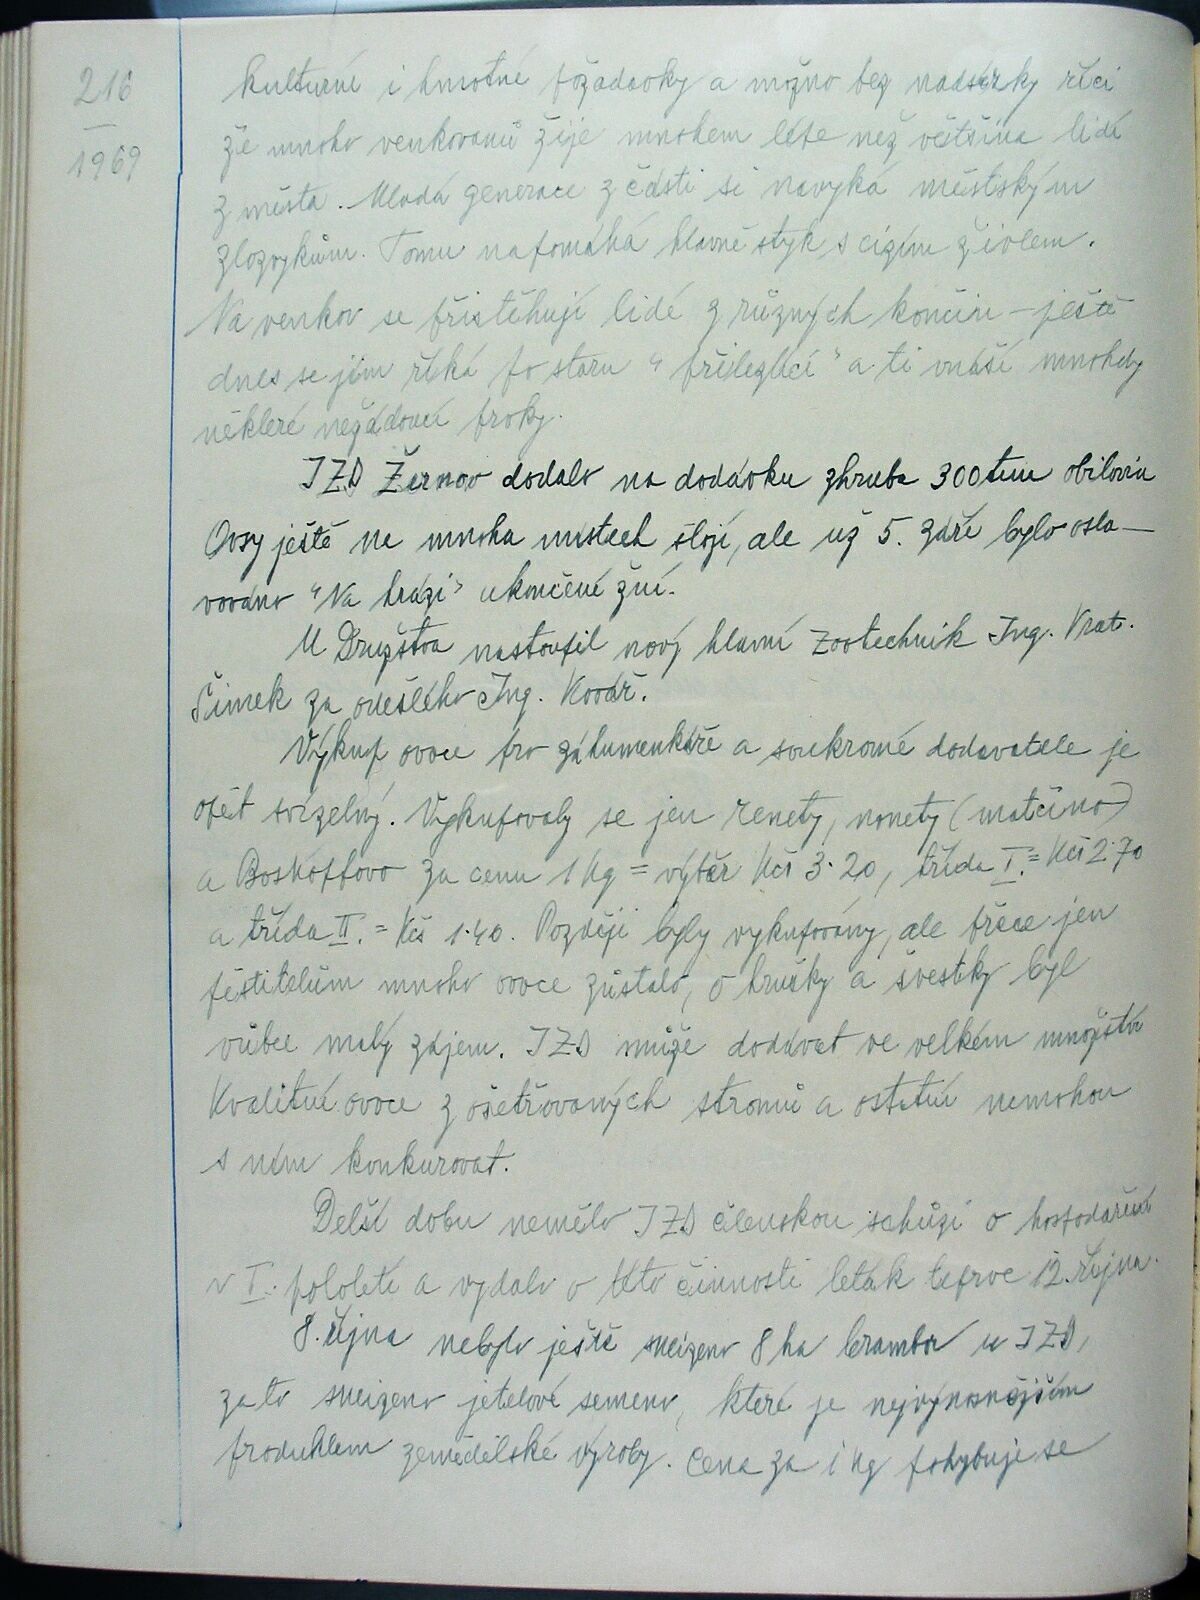 216
1969
kulturní i hmotné požadavky a možno bez nadsázky říci
že mnoho venkovanů žije mnohem lépe než většina lidí
z města. Mladá generace zčásti si navyká městským
zlozvykům. Tomu napomáhá hlavně styk s cizím živlem.
Na venkov se přistěhují lidé z různých končin – ještě
dnes se jim říká po staru "přilezlíci" a ti vnáší mnohdy
některé nežádoucí prvky.
JZD Žernov dodalo na dodávku zhruba 300 tun obilovin
Ovsy ještě na mnoha místech stojí, ale už 5. září bylo osla-
vováno "Na hrázi" ukončení žní.
U Družstva nastoupil nový hlavní zootechnik Ing. Vrat.
Šimek za odešlého Ing. Kovář.
Výkup ovoce pro záhumenkáře a soukromé dodavatele je
opět svízelný. Vykupovaly se jen renety, nonety (matčino)
a Boskoffovo za cenu 1 Kg = výběr Kčs 3·20, třída I. = Kčs 2·70
a třída II. = Kčs 1·40. Později byly vykupovány, ale přece jen
pěstitelům mnoho ovoce zůstalo, o hrušky a švestky byl
vůbec malý zájem. JZD může dodávat ve velkém množství
kvalitní ovoce z ošetřovaných stromů a ostatní nemohou
s ním konkurovat.
Delší dobu nemělo JZD členskou schůzi o hospodaření
v I. pololetí a vydalo o této činnosti leták teprve 12. října.
8. října nebylo ještě sklizeno 8 ha brambor u JZD,
za to sklizeno jetelové semeno, které je nejvýnosnějším
produktem zemědělské výroby. Cena za 1 Kg pohybuje se